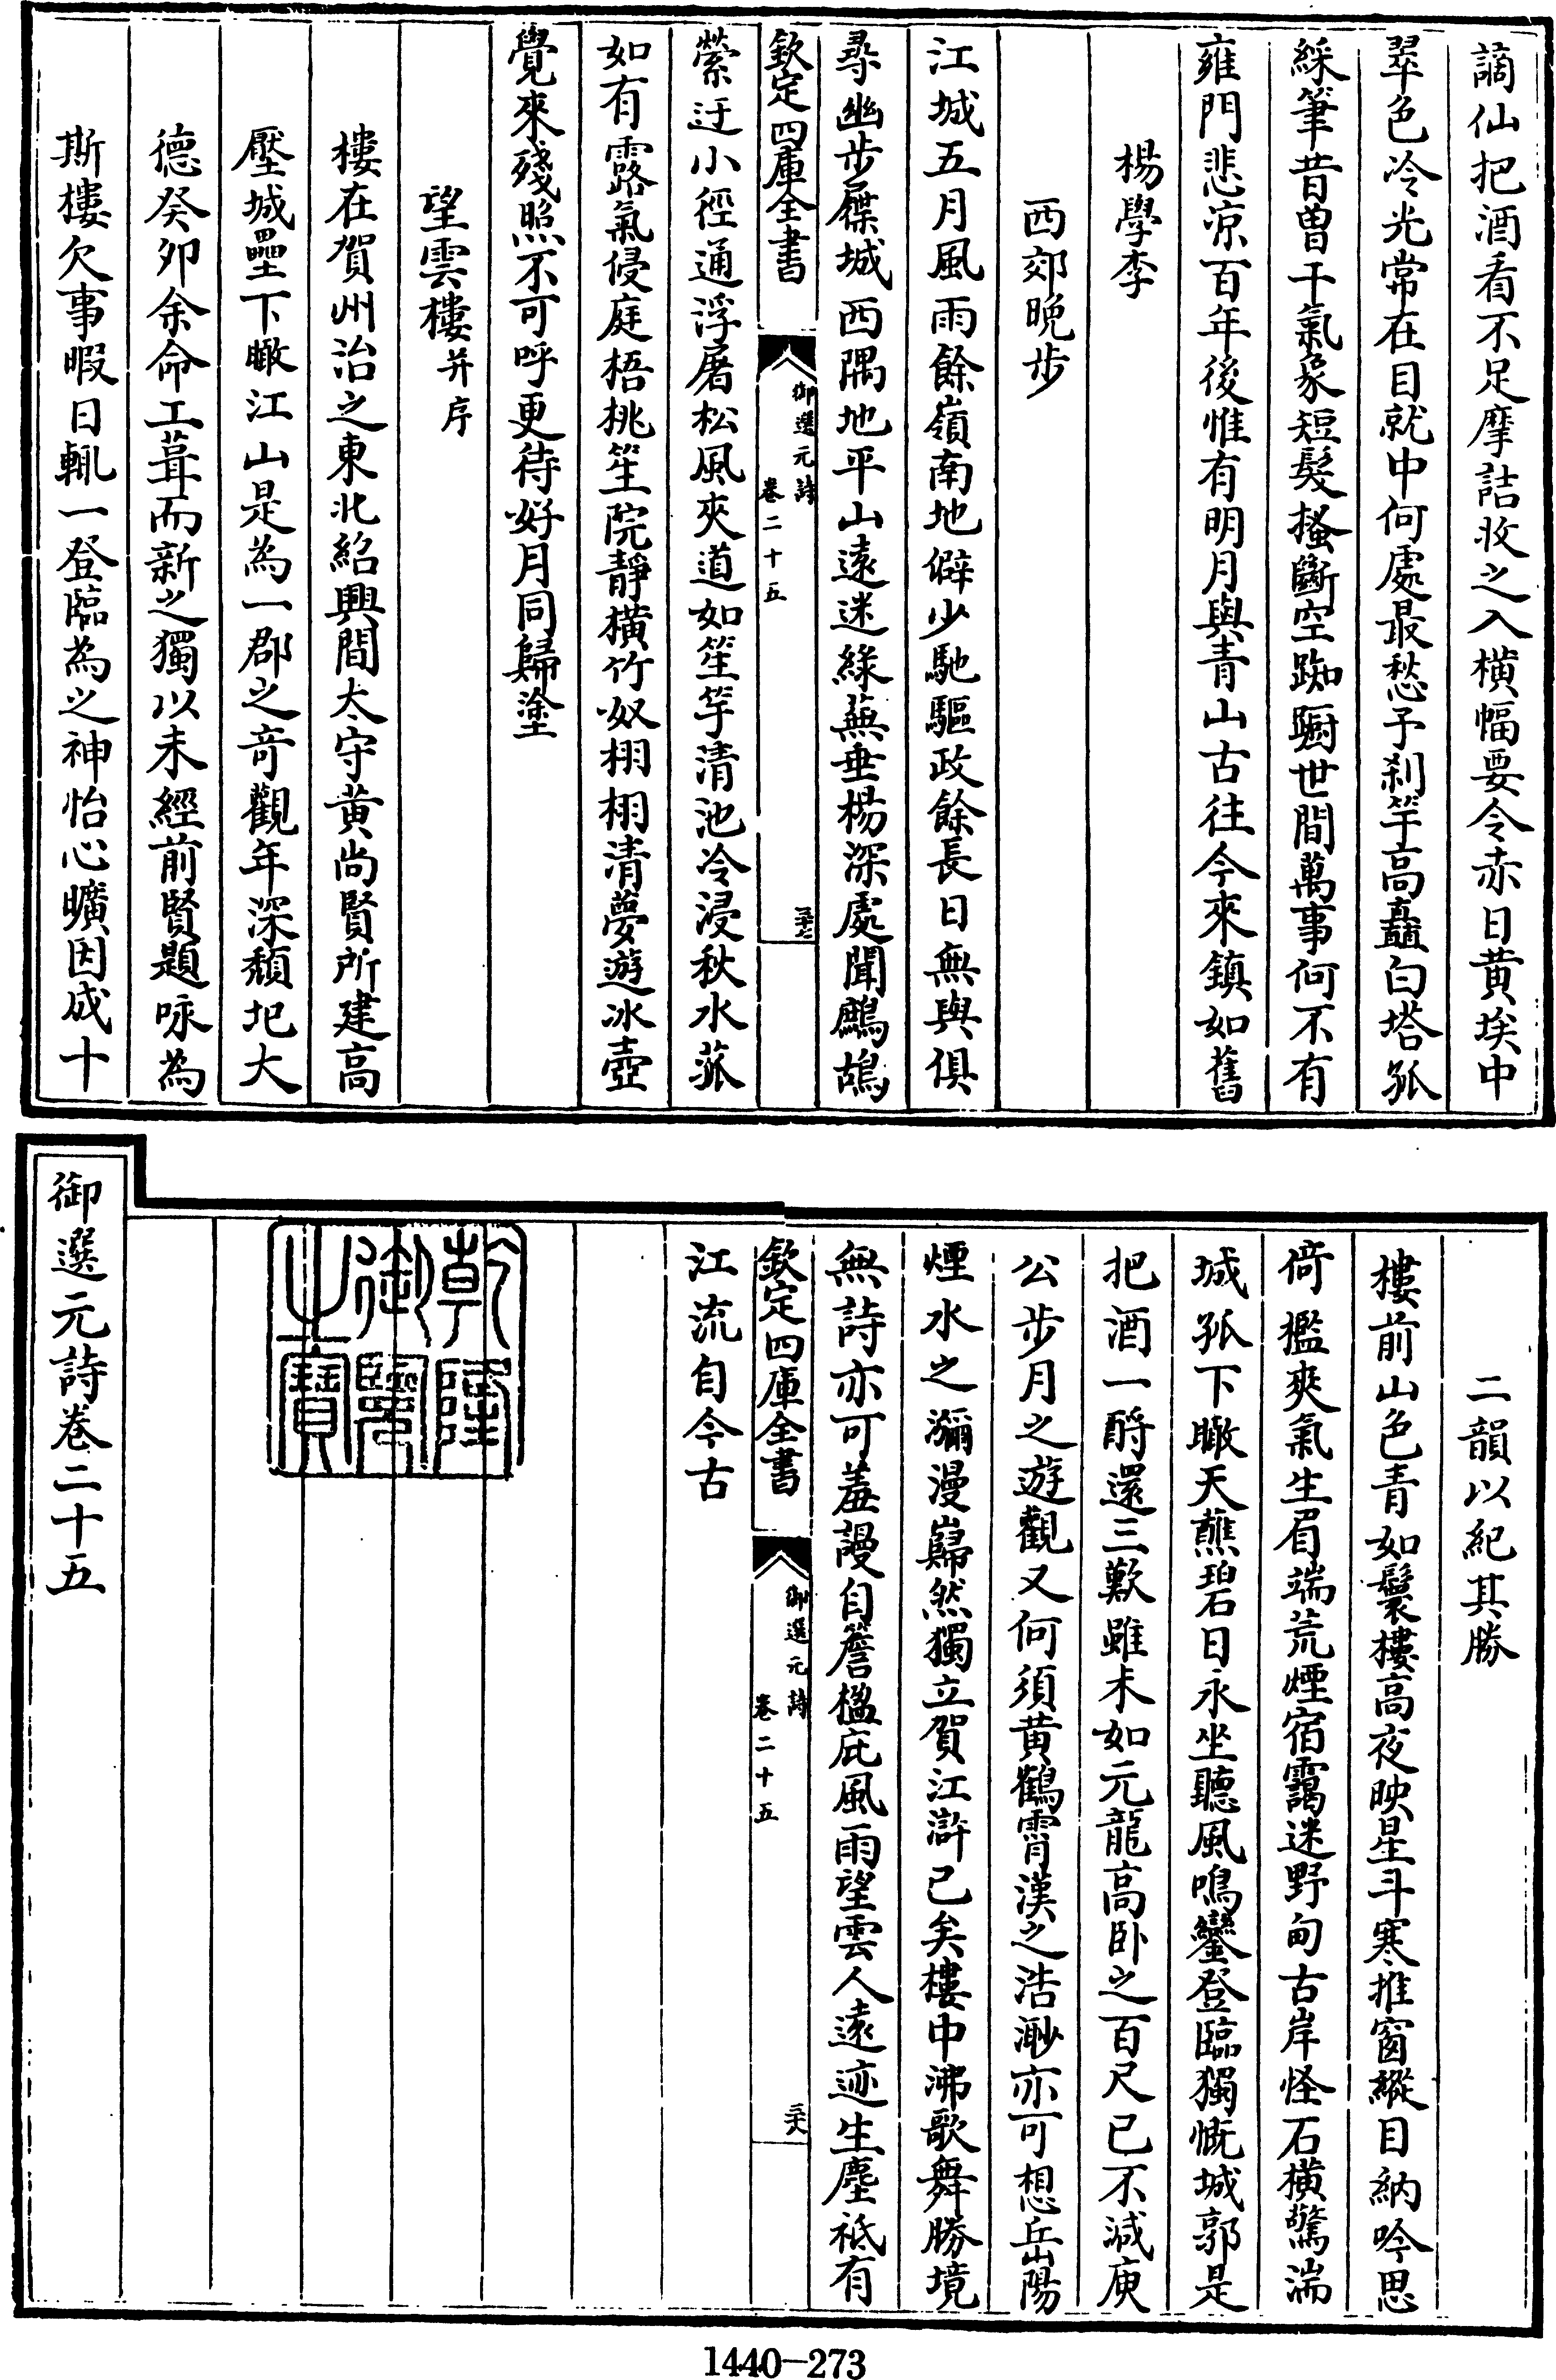 謫仙把酒看不足摩詰收之入横幅要令赤日黄埃中
翠色冷光常在目就中何處最愁予刹竿高矗白塔孤
綵筆昔曽干氣象短髮搔斷空踟蹰世間萬事何不有
雍門悲凉百年後惟有明月與青山古往今來鎮如舊
楊學李
西郊晚步
江城五月風雨餘嶺南地僻少馳驅政餘長日無與俱
尋幽步屧城西隅地平山遠迷綠蕪垂楊深處聞鷓鴣
欽定四庫全書
御選元詩
卷二十五
三十七
縈迂小徑通浮屠松風夾道如笙竽清池冷浸秋水菰
如有露氣侵庭梧桃笙院靜横竹奴栩栩清夢遊冰壺
覺來殘照不可呼更待好月同歸塗
望雲樓并序
樓在賀州治之東北紹興間太守黄尚賢所建高
壓城壘下瞰江山是為一郡之竒觀年深頹圯大
德癸卯余命工葺而新之獨以未經前賢題咏為
斯樓欠事暇日輒一登臨為之神怡心曠因成十
二韻以紀其勝
樓前山色青如鬟樓高夜映星斗寒推窗縱目納吟思
倚檻爽氣生眉端荒煙宿靄迷野甸古岸怪石横驚湍
城孤下瞰天蘸碧日永坐聽風鳴鑾登臨獨慨城郭是
把酒一酹還三歎雖未如元龍高卧之百尺已不減庾
公步月之遊觀又何須黄鶴霄漢之浩渺亦可想岳陽
煙水之瀰漫巋然獨立賀江滸已矣樓中沸歌舞勝境
無詩亦可羞謾自簷楹庇風雨望雲人遠迹生塵祗有
欽定四庫全書
御選元詩
卷二十五
三十八
江流自今古
乾隆
御覽
之寶
御選元詩卷二十五
1440—273